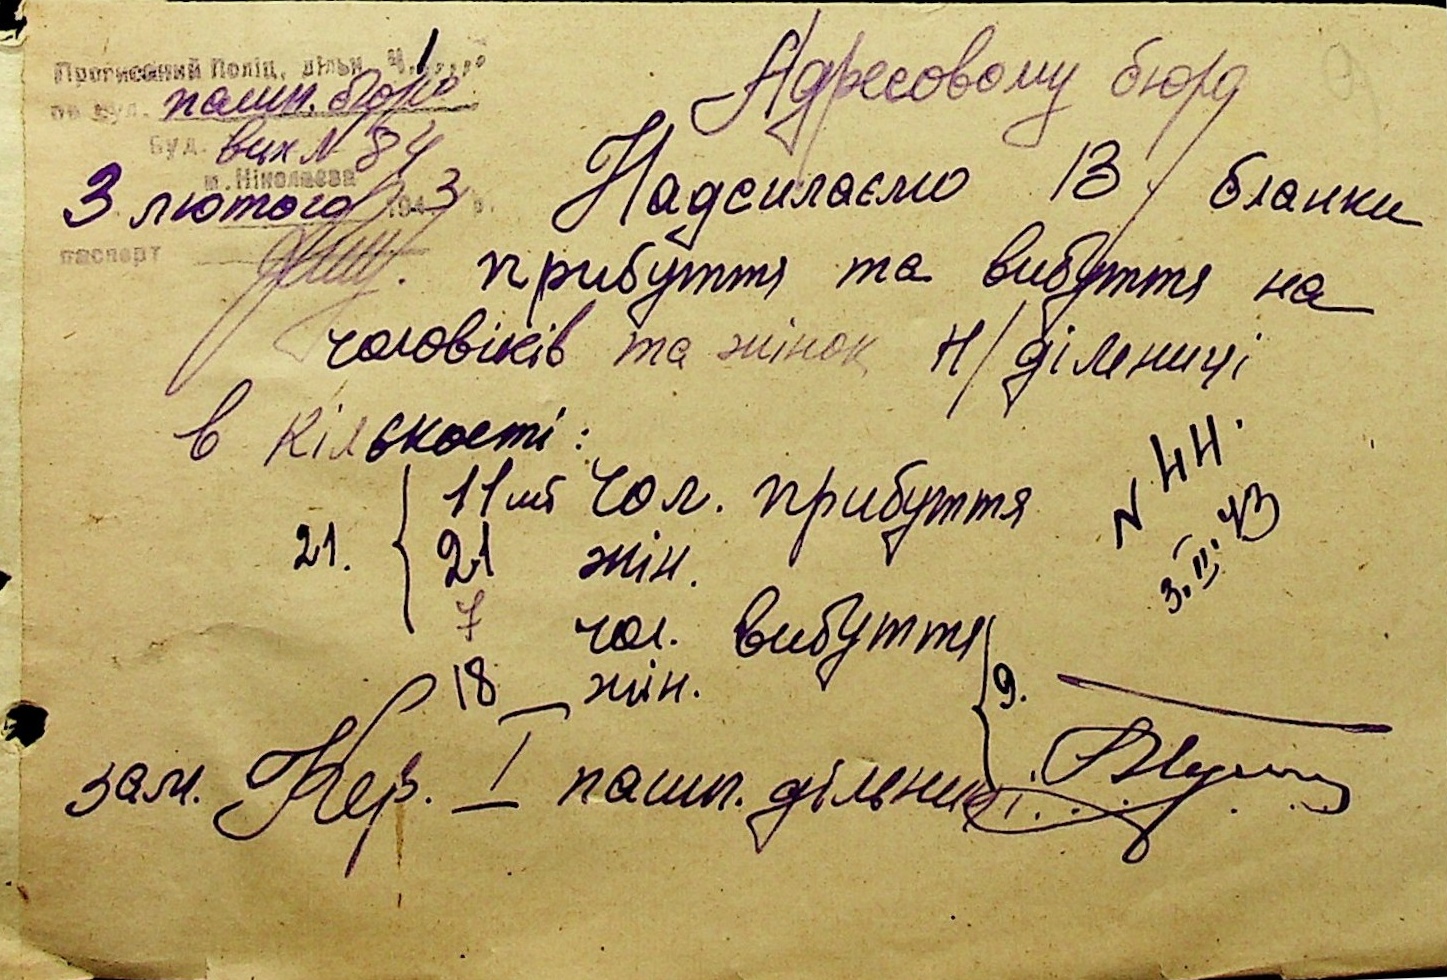 Прописаний Поліц. дільн. Ч. 1
по вул. пашп. бюро
буд. вих N 84
м. Ніколаєва
3 лютого 1943 р.
паспорт
Адресовому бюро
Надсилаємо 13 бланки
прибуття та вибуття на
чоловіків та жінок н/ділениці
в кількості:
11 шт чол. прибуття
21. { 21 жін.
7 чол. вибуття
18 жін. } 9.
N 44.
3.II.43
зам. Кер. I пашп. дільниці